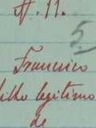 N. 11.
5
Francisco
filho legitimo
de